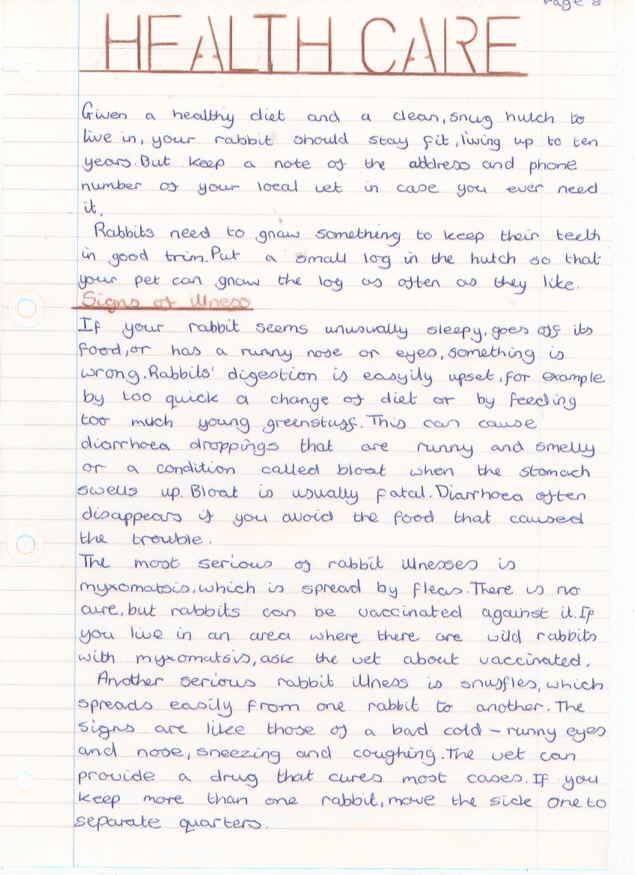 Page 8
HEALTH CARE
Given a healthy diet and a clean, snug hutch to
live in, your rabbit should stay fit, living up to ten
years. But keep a note of the address and phone
number of your local vet in case you ever need
it.
Rabbits need to gnaw something to keep their teeth
in good trim. Put a small log in the hutch so that
your pet can gnaw the log as often as they like.
Signs of illness
If your rabbit seems unusually sleepy, goes off its
food, or has a runny nose or eyes, something is
wrong. Rabbits' digestion is easyily upset, for example
by too quick a change of diet or by feeding
too much young greenstuff. This can cause
diarrhoea droppings that are runny and smelly
or a condition called bloat when the stomach
swells up. Bloat is usually fatal. Diarrhoea often
disappears if you avoid the food that caused
the trouble.
The most serious of rabbit illnesses is
myxomatsis, which is spread by fleas. There is no
cure, but rabbits can be vaccinated against it. If
you live in an area where there are wild rabbits
with myxomatsis, ask the vet about vaccinated.
Another serious rabbit illness is snuffles, which
spreads easily from one rabbit to another. The
signs are like those of a bad cold - runny eyes
and nose, sneezing and coughing. The vet can
provide a drug that cures most cases. If you
keep more than one rabbit, move the sick one to
separate quarters.